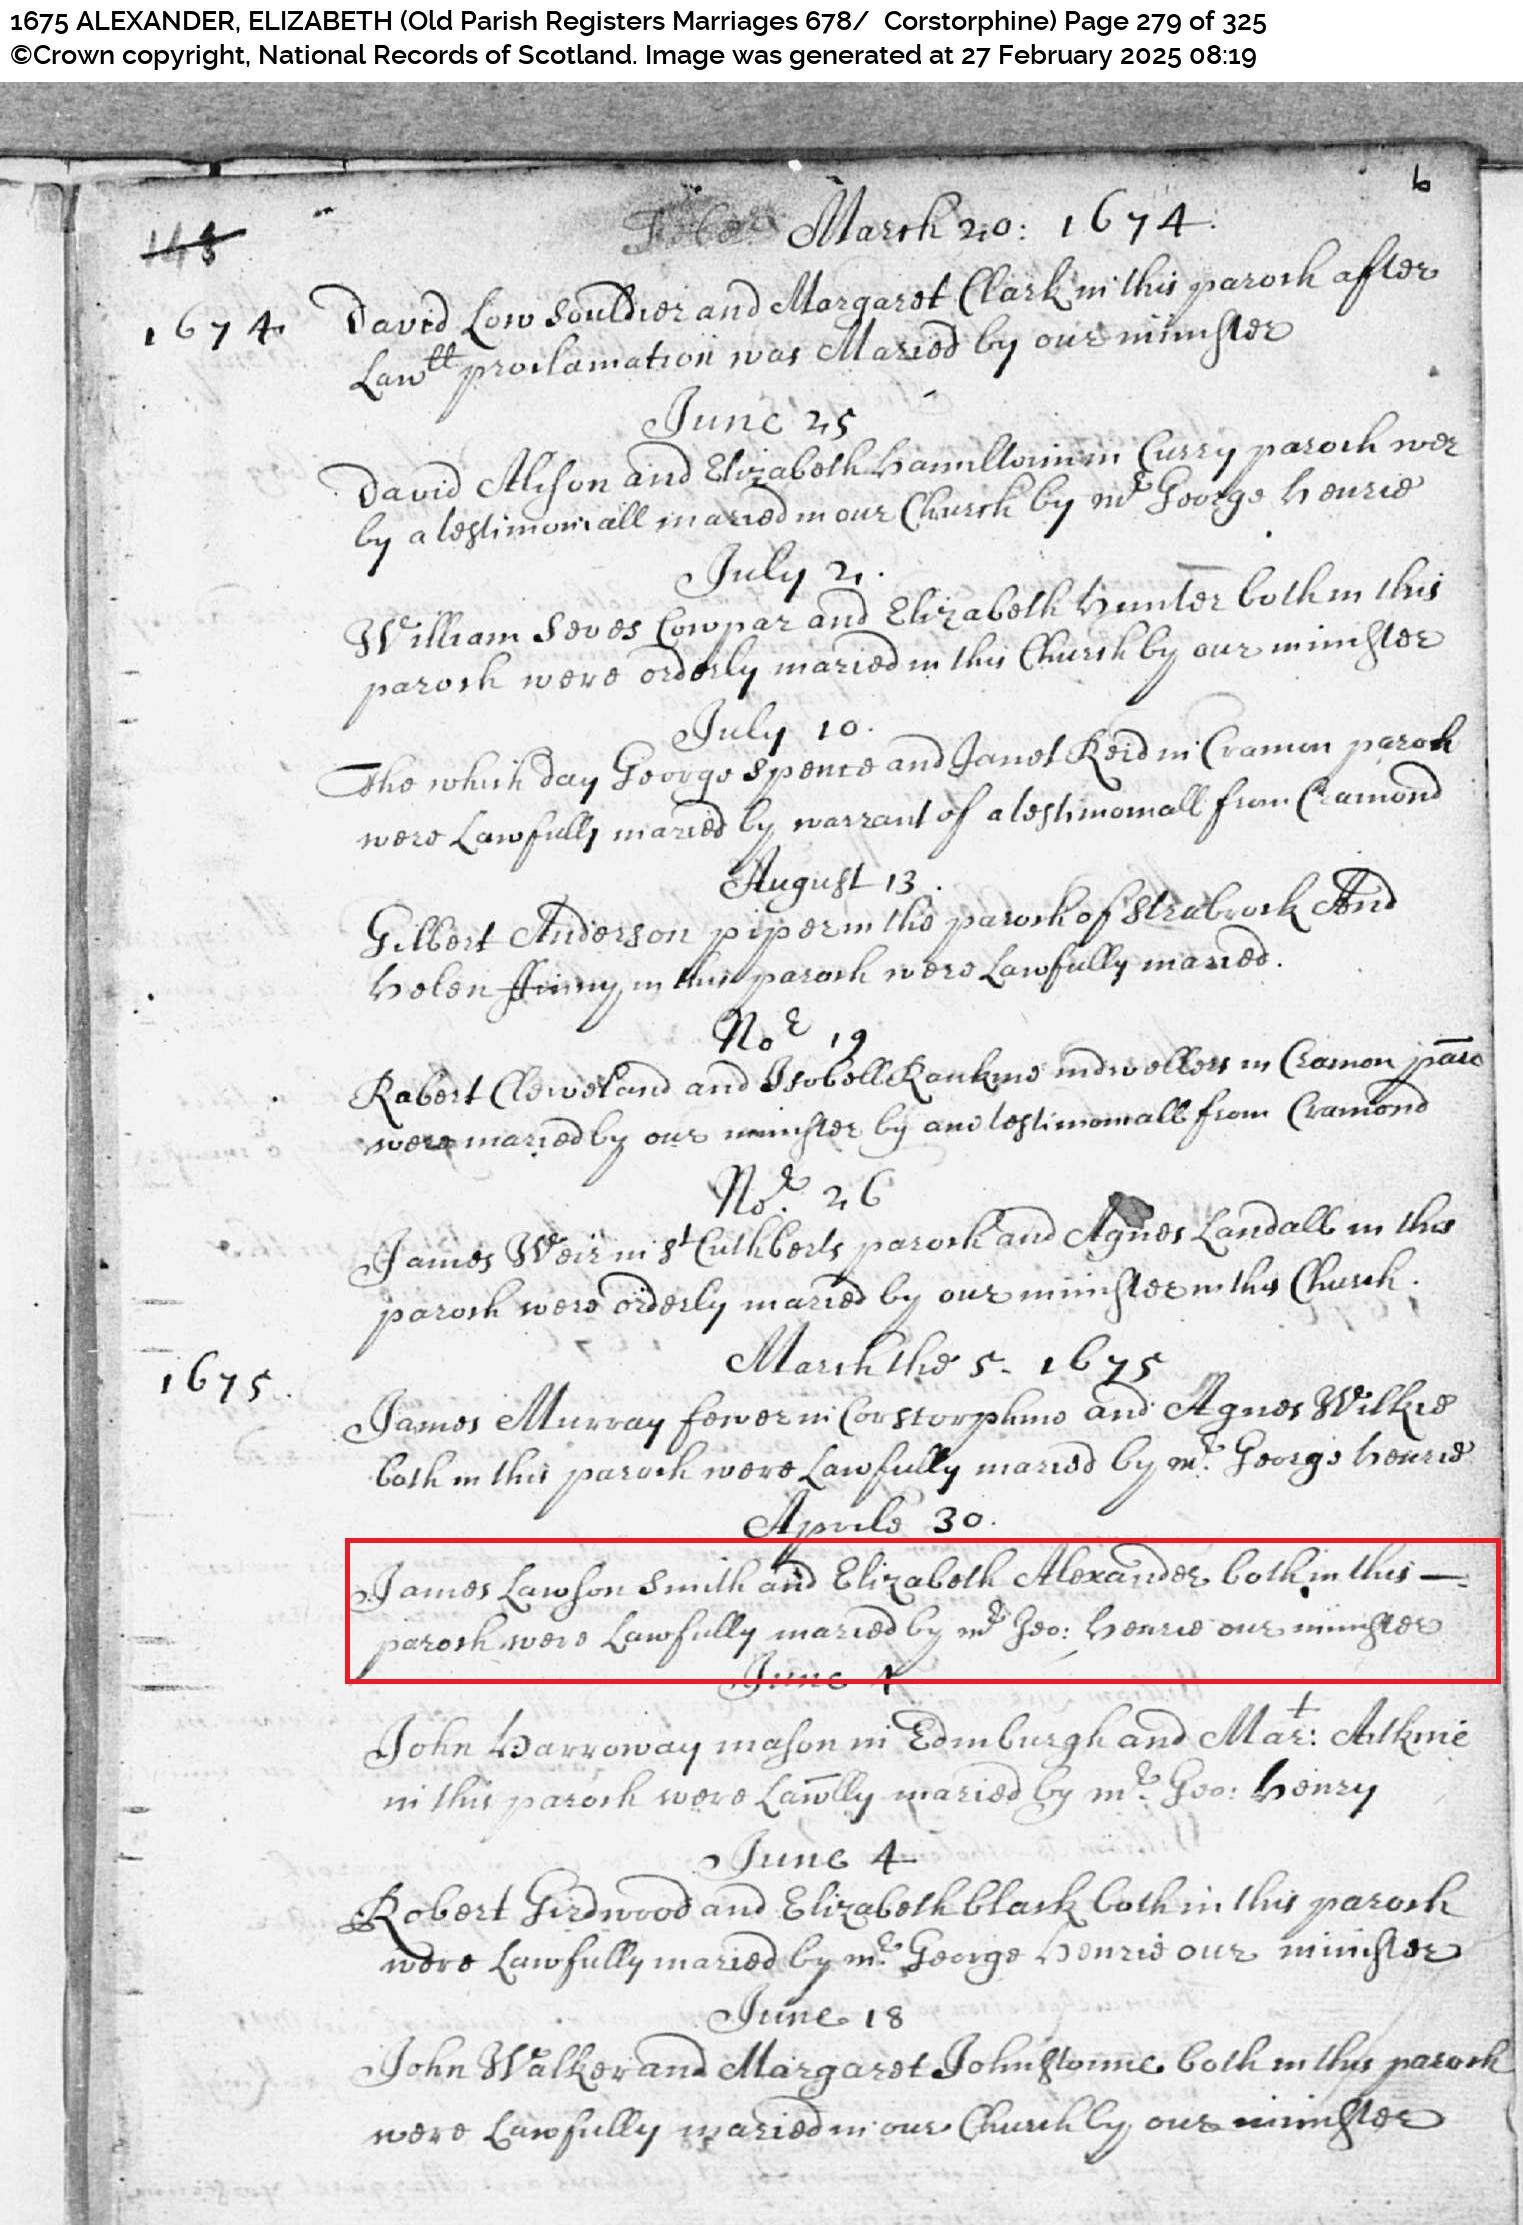 1675 ALEXANDER, ELIZABETH (Old Parish Registers Marriages 678/ Corstorphine) Page 279 of 325
©Crown copyright, National Records of Scotland. Image was generated at 27 February 2025 08:19
6
March 20: 1674.
148
1674
David Low Souldier and Margaret Clark in this paroch after
Lawll proclamation was Maried by our minister
June 25
David Alison and Elizabeth Hamiltoun in Curry paroch wer
by a testimoniall maried in our Church by mr George Henrie
July 2.
William Seves Cowpar and Elizabeth Hunter both in this
paroch were orderly maried in this Church by our minister
July 10.
The which day George Spence and Janet Reid in Cramon paroch
were Lawfully maried by warrant of a testimoniall from Cramond
August 13.
Gilbert Anderson piper in the paroch of Strabrock And
Helen in this paroch were Lawfully maried.
No:r 19
Robert Cleweland and Isobell Rankine indwellers in Cramon paro
were maried by our minister by ane testimoniall from Cramond
No:r 26
James Weir in St Cuthberts paroch and Agnes Landall in this
paroch were orderly maried by our minister in this Church.
March the 5. 1675
1675.
James Murray fewer in Corstorphine and Agnes Wilkie
both in this paroch were Lawfully maried by mr George Henrie
Aprile 30.
James Lawson Smith and Elizabeth Alexander both in this —
paroch were Lawfully maried by mr Geo: Henrie our minister
June 4
John Harroway mason in Edinburgh and Mar: Atkine
in this paroch were Lawlly maried by mr Geo: Henry
June 4
Robert Girdwood and Elizabeth black both in this paroch
were Lawfully maried by mr George Henrie our minister
June 18
John Walker and Margaret Johnstoune both in this paroch
were Lawfully maried in our Church by our minister